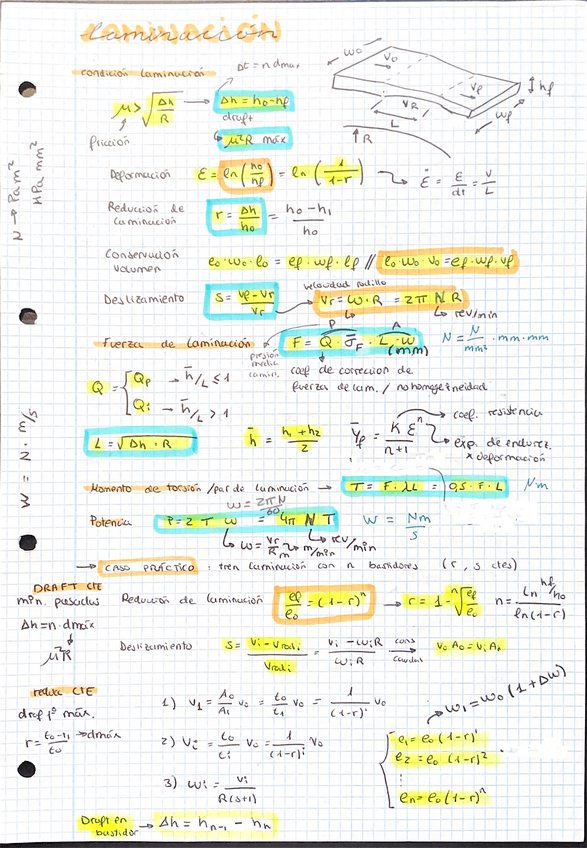 Laminación
Δt = n dmax
condición laminación
μ > √(Δh/R) → Δh = h0 - hf
draft
fricción
μ²R máx
w0 v0 vR L vf wf hf
R
N → Pa m²
MPa mm²
Deformación ε = ln(h0/hf) = ln(1/(1-r)) → ε̇ = ε/dt = v/L
Reducción de laminación r = Δh/h0 = (h0 - h1)/h0
Conservación volumen e0·w0·l0 = ef·wf·lf // e0·w0·v0 = ef·wf·vf
velocidad rodillo
Deslizamiento s = (vf - vr)/vr → vr = ω·R = 2π N R
rev/min
P A
Fuerza de laminación → F = Q·σ̄F·L·w N = N/mm² · mm·mm
(mm)
presión media lamin.
coef de corrección de
fuerza de lam. / no homogeneidad
Q = { Qp → h̄/L ≤ 1
Qi → h̄/L > 1
coef. resistencia
L = √(Δh·R) h̄ = (h1 + h2)/2 Ȳf = K εⁿ/(n+1)
exp. de endurez.
x deformación
W = N · m/s
Momento de torsión / par de laminación → T = F·λL = 0,5·F·L Nm
w = 2πN/60
Potencia P = 2 T w = 4π N T W = Nm/s
rev/min
w = vr/R m/min
m
→ CASO PRÁCTICO: tren laminación con n bastidores (r, s ctes)
DRAFT CTE
mín. pasadas
Δh = n·dmáx
μ²R
Reducción de laminación ef/e0 = (1-r)ⁿ → r = 1 - ⁿ√(ef/e0) n = ln(hf/h0)/ln(1-r)
Deslizamiento s = (vi - vrodi)/vrodi = (vi - wiR)/wiR cons caudal → v0 A0 = vi Ai
w1 = w0 (1 + Δw)
reduc CTE
1º máx.
r = (t0 - t1)/t0 → dmáx
1) v1 = A0/A1 v0 = t0/t1 v0 = 1/(1-r)ⁱ v0
2) vi = t0/ti v0 = 1/(1-r)ⁱ v0
3) wi = vi/R(s+1)
e1 = e0 (1-r)¹
e2 = e0 (1-r)²
⋮
en = e0 (1-r)ⁿ
Draft en bastidor → Δh = hn-1 - hn